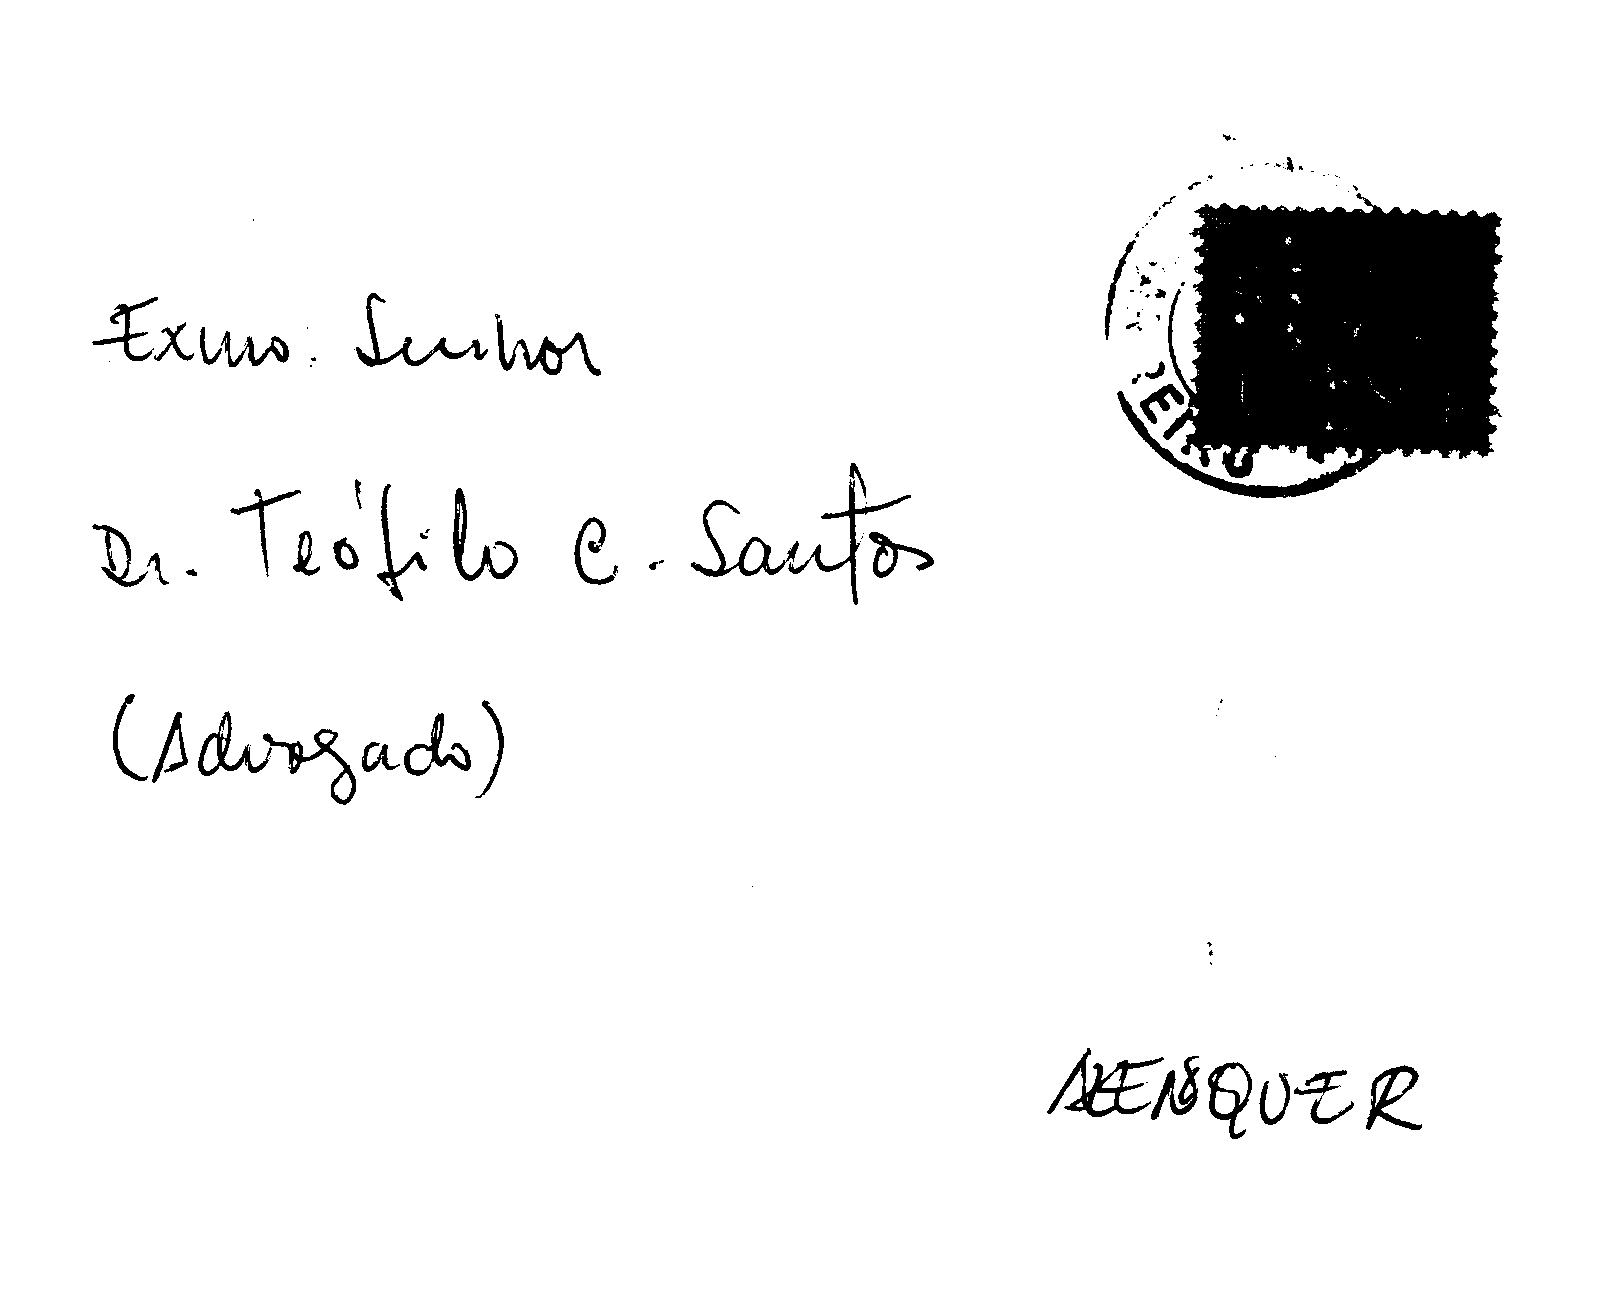 Exmo. Senhor
Dr. Teófilo C. Santos
(Advogado)
ALENQUER